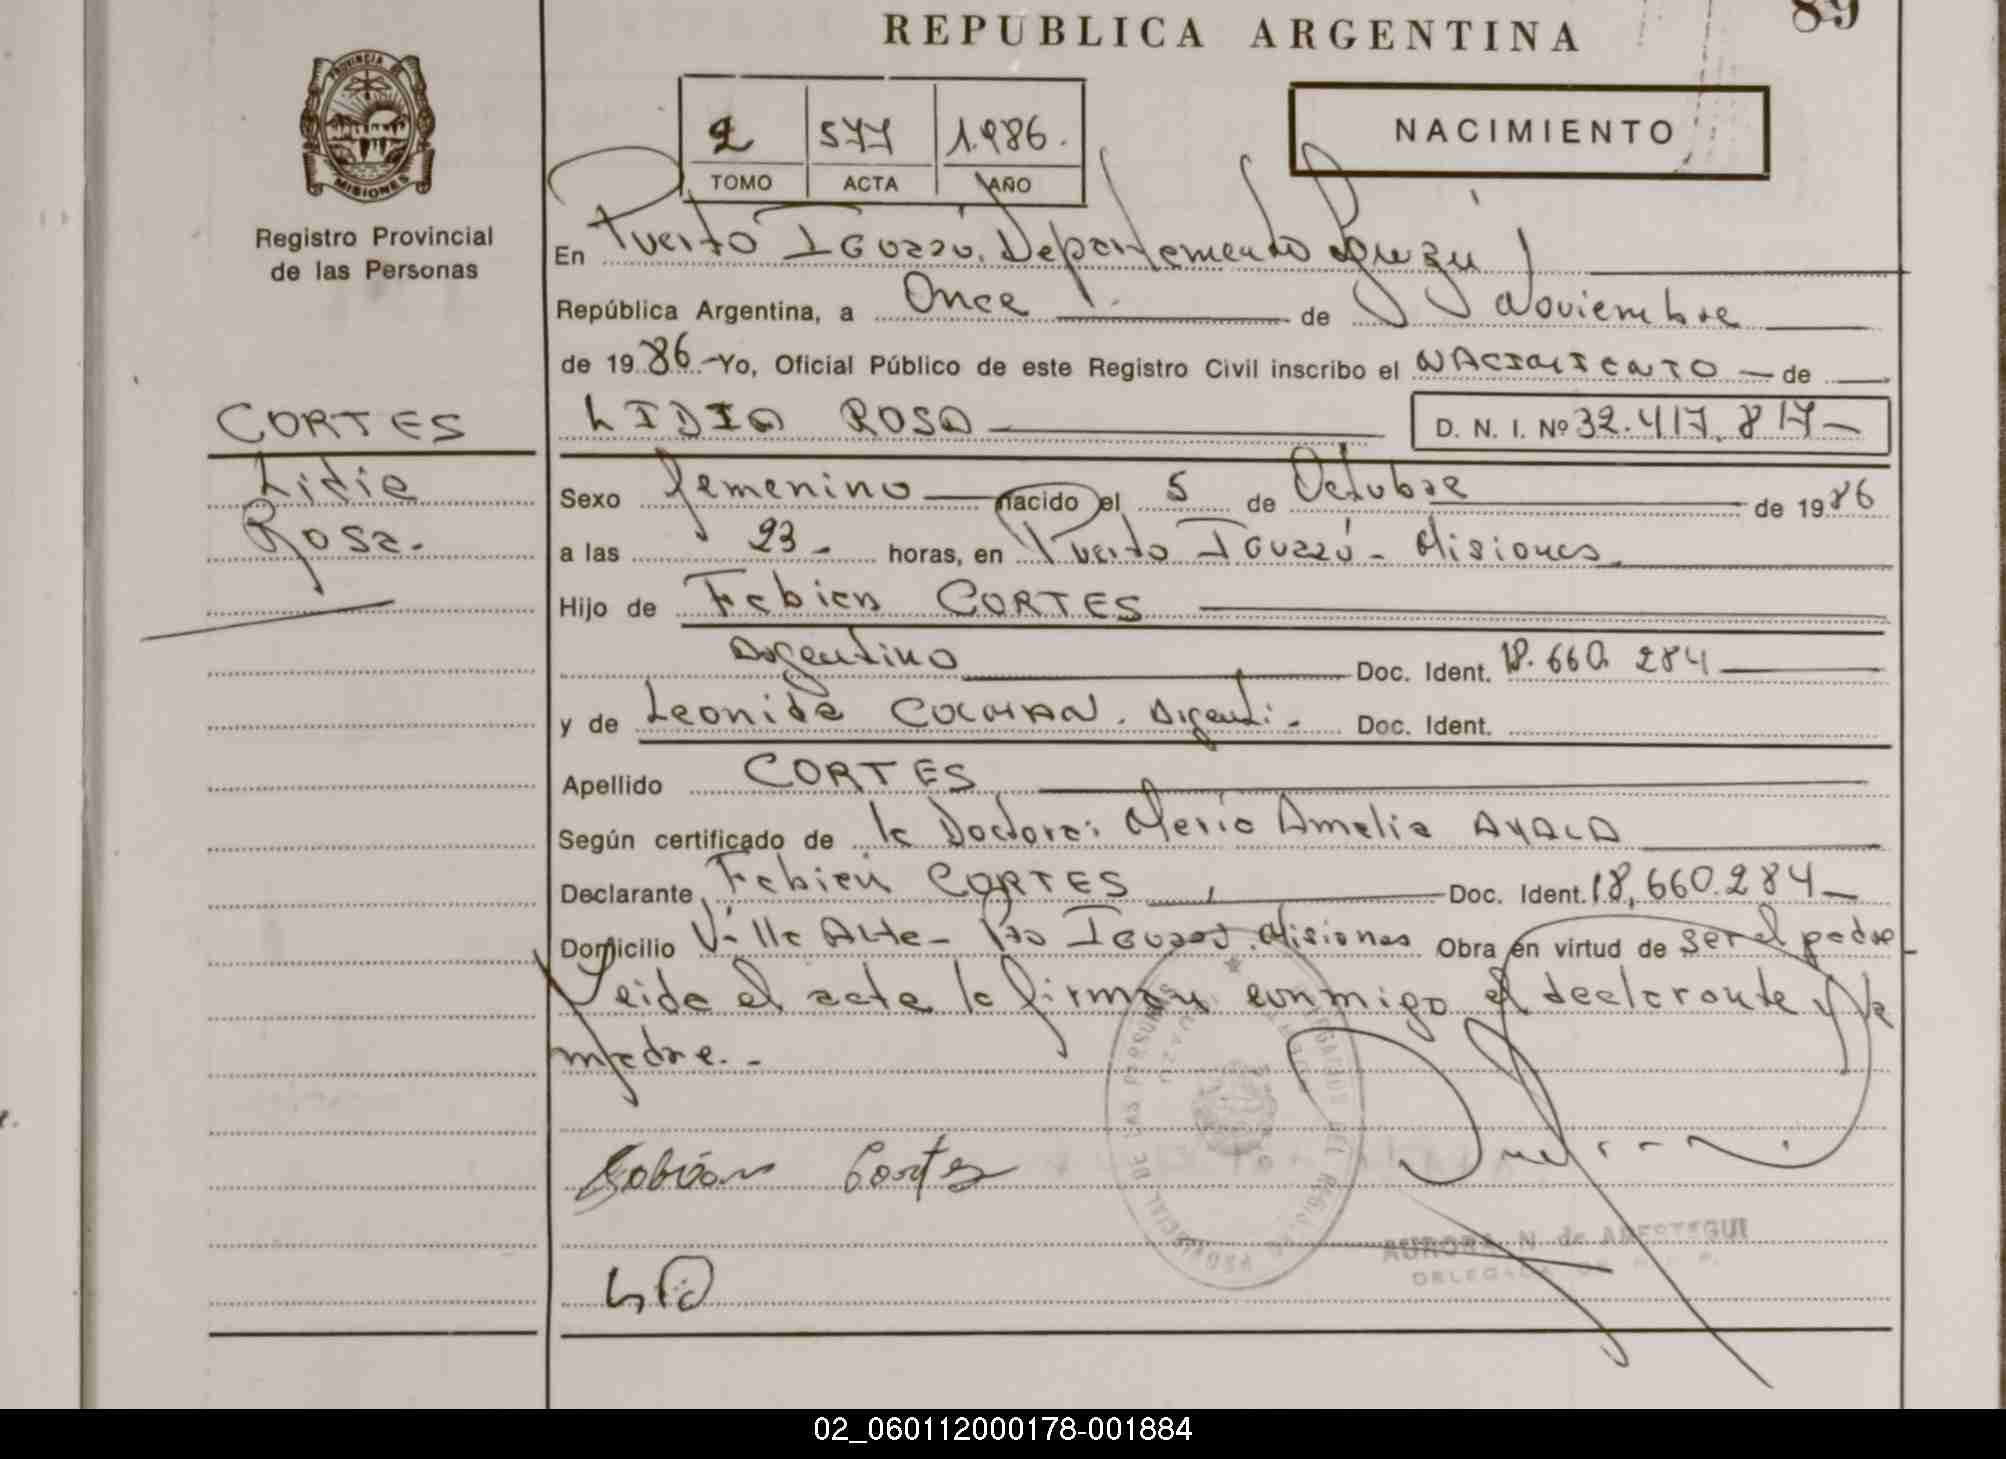 REPUBLICA ARGENTINA
89
PROVINCIA DE
MISIONES
Registro Provincial
de las Personas
2 577 1.986.
TOMO ACTA AÑO
NACIMIENTO
En Puerto IGuazú. Departamento Iguazú
República Argentina, a Once de Noviembre
de 1986.-Yo, Oficial Público de este Registro Civil inscribo el NACIMIENTO de
CORTES
Lidia
Rosa.
LIDIA ROSA D. N. I. Nº 32.417.817
Sexo femenino nacido el 5 de Octubre de 1986
a las 23 - horas, en Puerto IGuazú - Misiones
Hijo de Fabian CORTES
Argentino Doc. Ident. 18.660.284
y de Leonida COLMAN. Argenti - Doc. Ident.
Apellido CORTES
Según certificado de la Doctora: María Amelia AYALA
Declarante Fabian CORTES Doc. Ident. 18,660.284
Domicilio Villa Alta - Pto IGuazú. Misiones Obra en virtud de ser el padre
Leida el acta la firman conmigo el declarante y la
madre. -
Fabián Cortes
AURORA N. de
DELEGADA
02_060112000178-001884